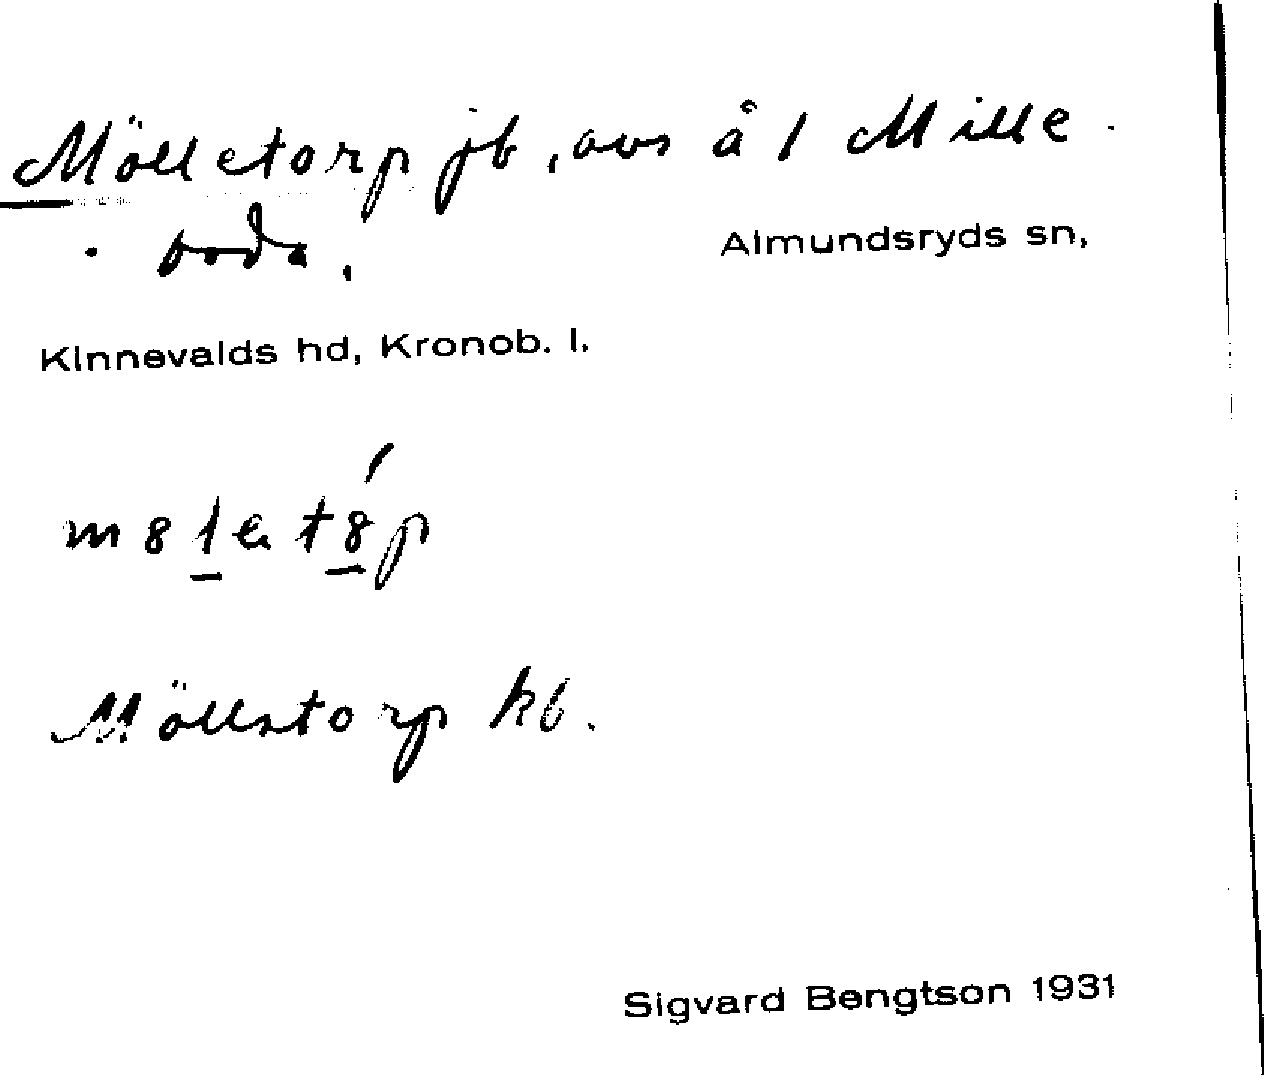 Mölletorp jb, avs å 1 Mille-
boda.
Almundsryds sn,
Kinnevalds hd, Kronob. l.
Möllstorp kb.
Sigvard Bengtson 1931